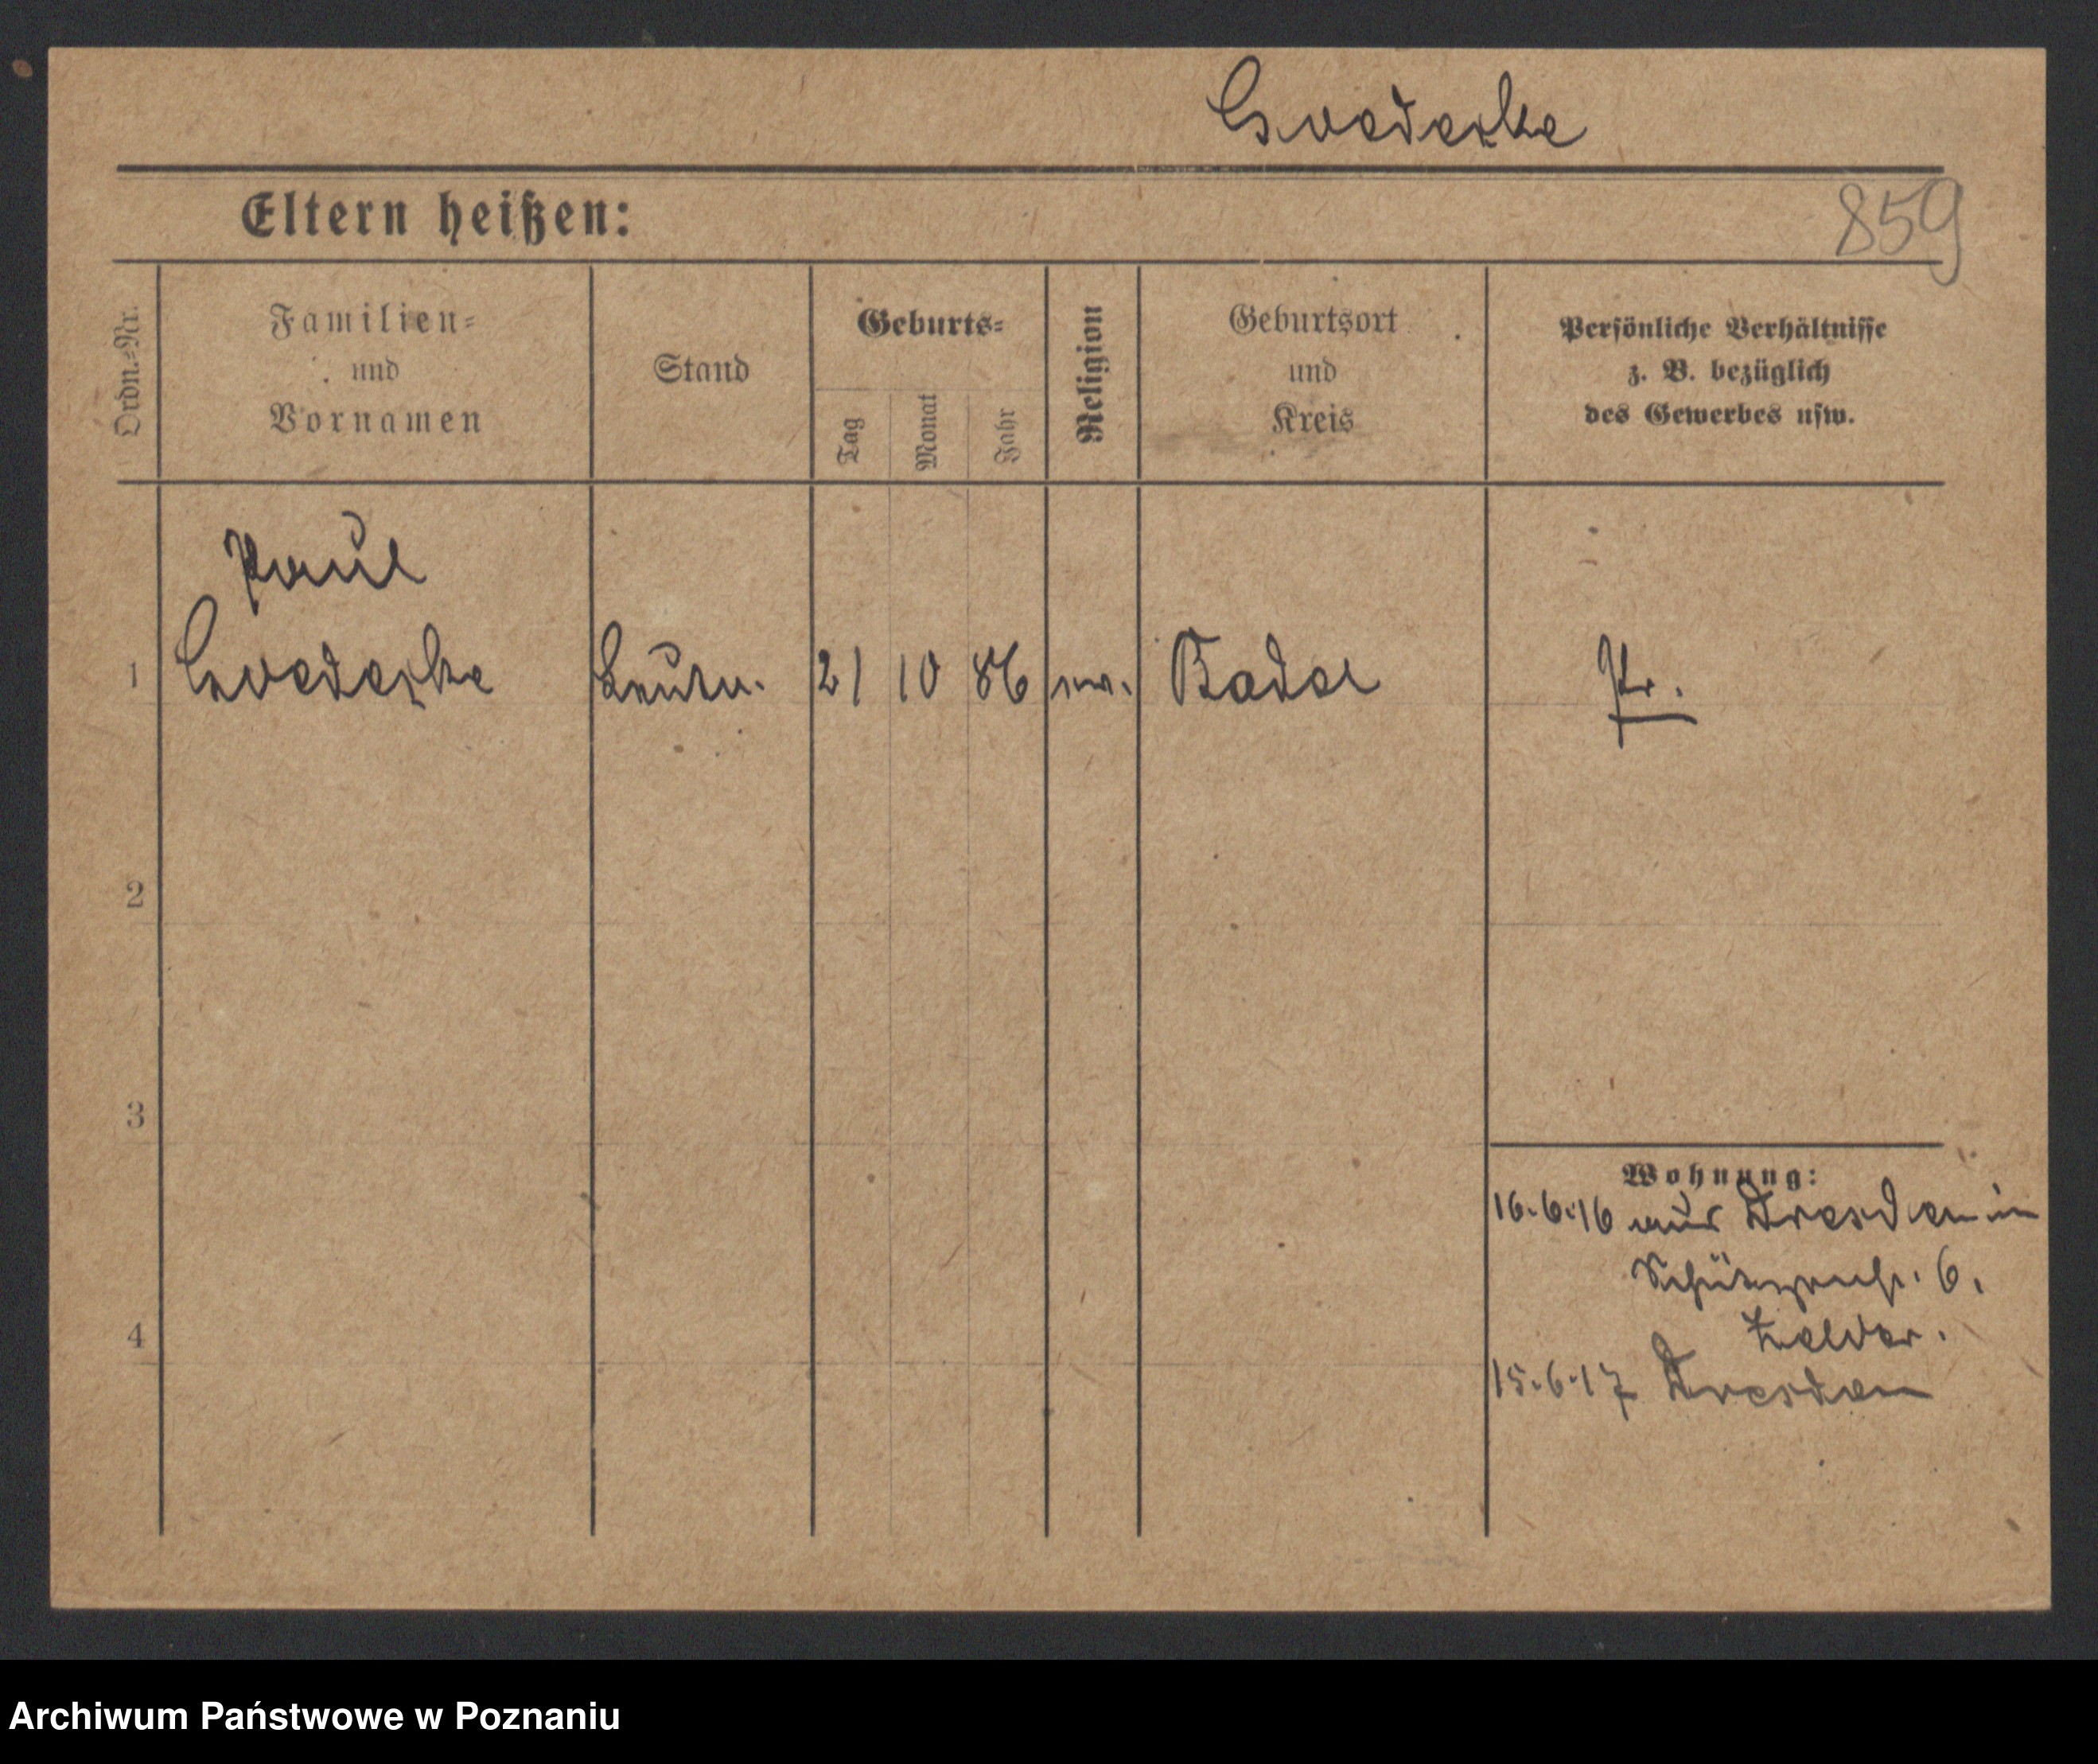 Goedecke
Eltern heißen:
859
Ordn.=Nr.
Familien=
und
Vornamen
Stand
Geburts=
Tag
Monat
Jahr
Religion
Geburtsort
und
Kreis
Persönliche Verhältnisse
z. B. bezüglich
des Gewerbes usw.
Paul
1 Goedecke 21 10 86 Badel Pr.
2
3
4
Wohnung:
16.6.16 aus Dresden in
6.
15.6.17 Dresden
Archiwum Państwowe w Poznaniu